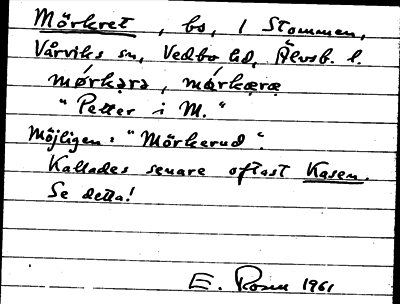 Mörkret, bs, i Stommen,
Vårviks sn, Vedbo hd, Älvsb. l.
mǿrkərə, mǿrkæræ
"Petter i M."
Möjligen: "Mörkerud".
Kallades senare oftast Kasen.
Se detta!
E. Rosm 1961